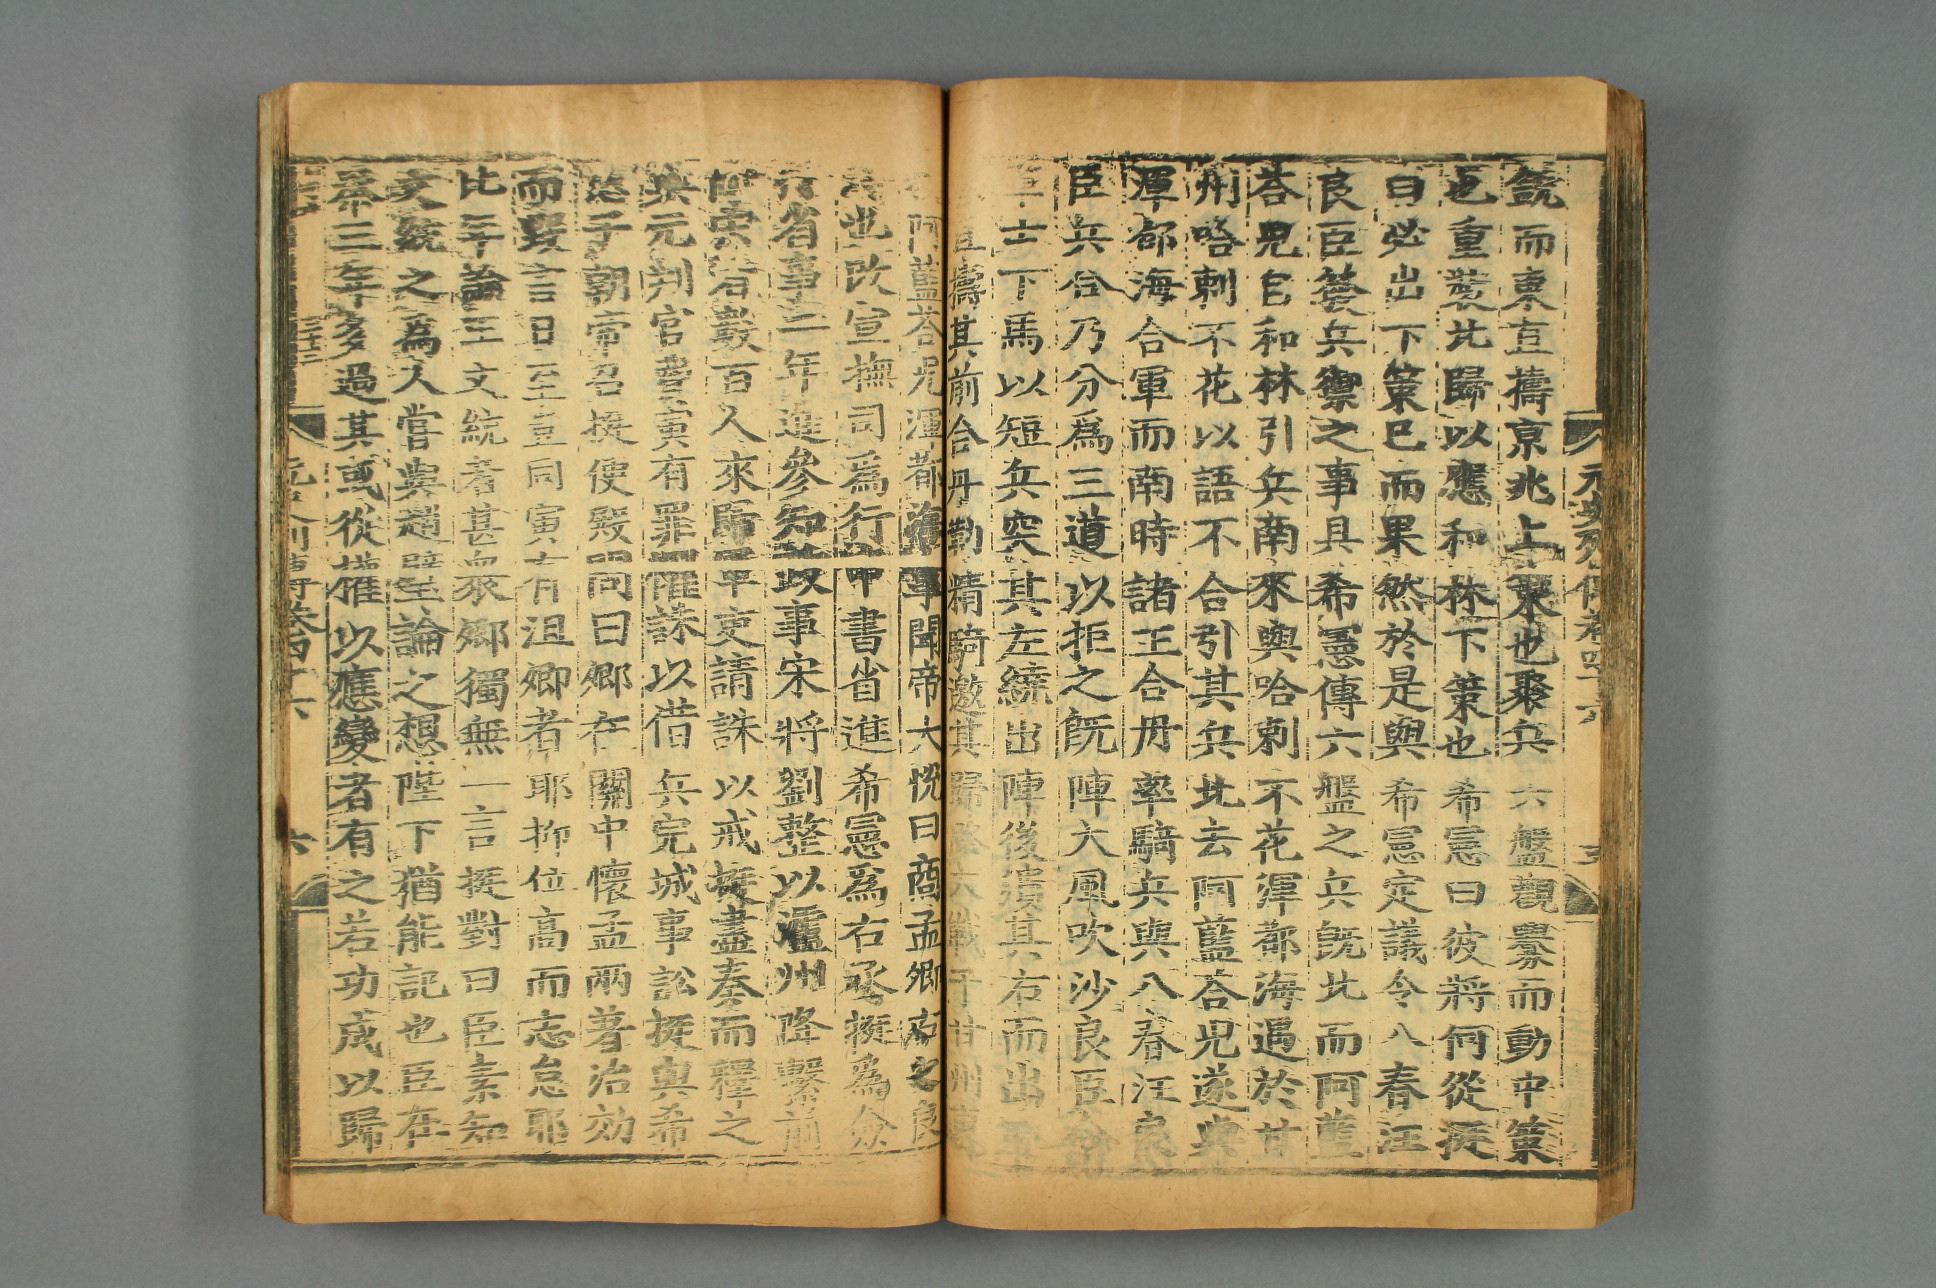 元史列傳卷四十六
銳而東直擣京兆上策也聚兵六盤觀釁而動中策
也重裝北歸以應和林下策也希憲曰彼將何從挺
曰必出下策已而果然於是與希憲定議令八春汪
良臣發兵禦之事具希憲傳六盤之兵既北而阿藍
荅兒自和林引兵南來與哈剌不花渾都海遇於甘
州哈剌不花以語不合引其兵北去阿藍荅兒遂與
渾都海合軍而南時諸王合丹率騎兵與八春汪良
臣兵合乃分爲三道以拒之既陣大風吹沙良臣
軍士下馬以短兵突其左繞出陣後潰其右而出
良臣擣其前合丹勒精騎邀其歸路大戰于甘州東
殺阿藍荅兒渾都海事聞帝大悅曰商孟卿古之良
將也改宣撫司爲行中書省進希憲爲右丞挺爲僉
行省事二年進參知政事宋將劉整以瀘州降繫前
降宋者數百人來歸軍吏請誅以戒挺盡奏而釋之
興元判官費寅有罪懼誅以借兵完城事訟挺與希
憲于朝帝召挺便殿問曰卿在關中懷孟兩著治効
而毀言日至豈同寅有沮卿者耶抑位高而志怠耶
比年論王文統者甚衆卿獨無一言挺對曰臣素知
文統之爲人嘗與趙璧論之想陛下猶能記也臣在
秦三年多過其或從權以應變者有之若功成以歸
元史列傳卷四十六
六